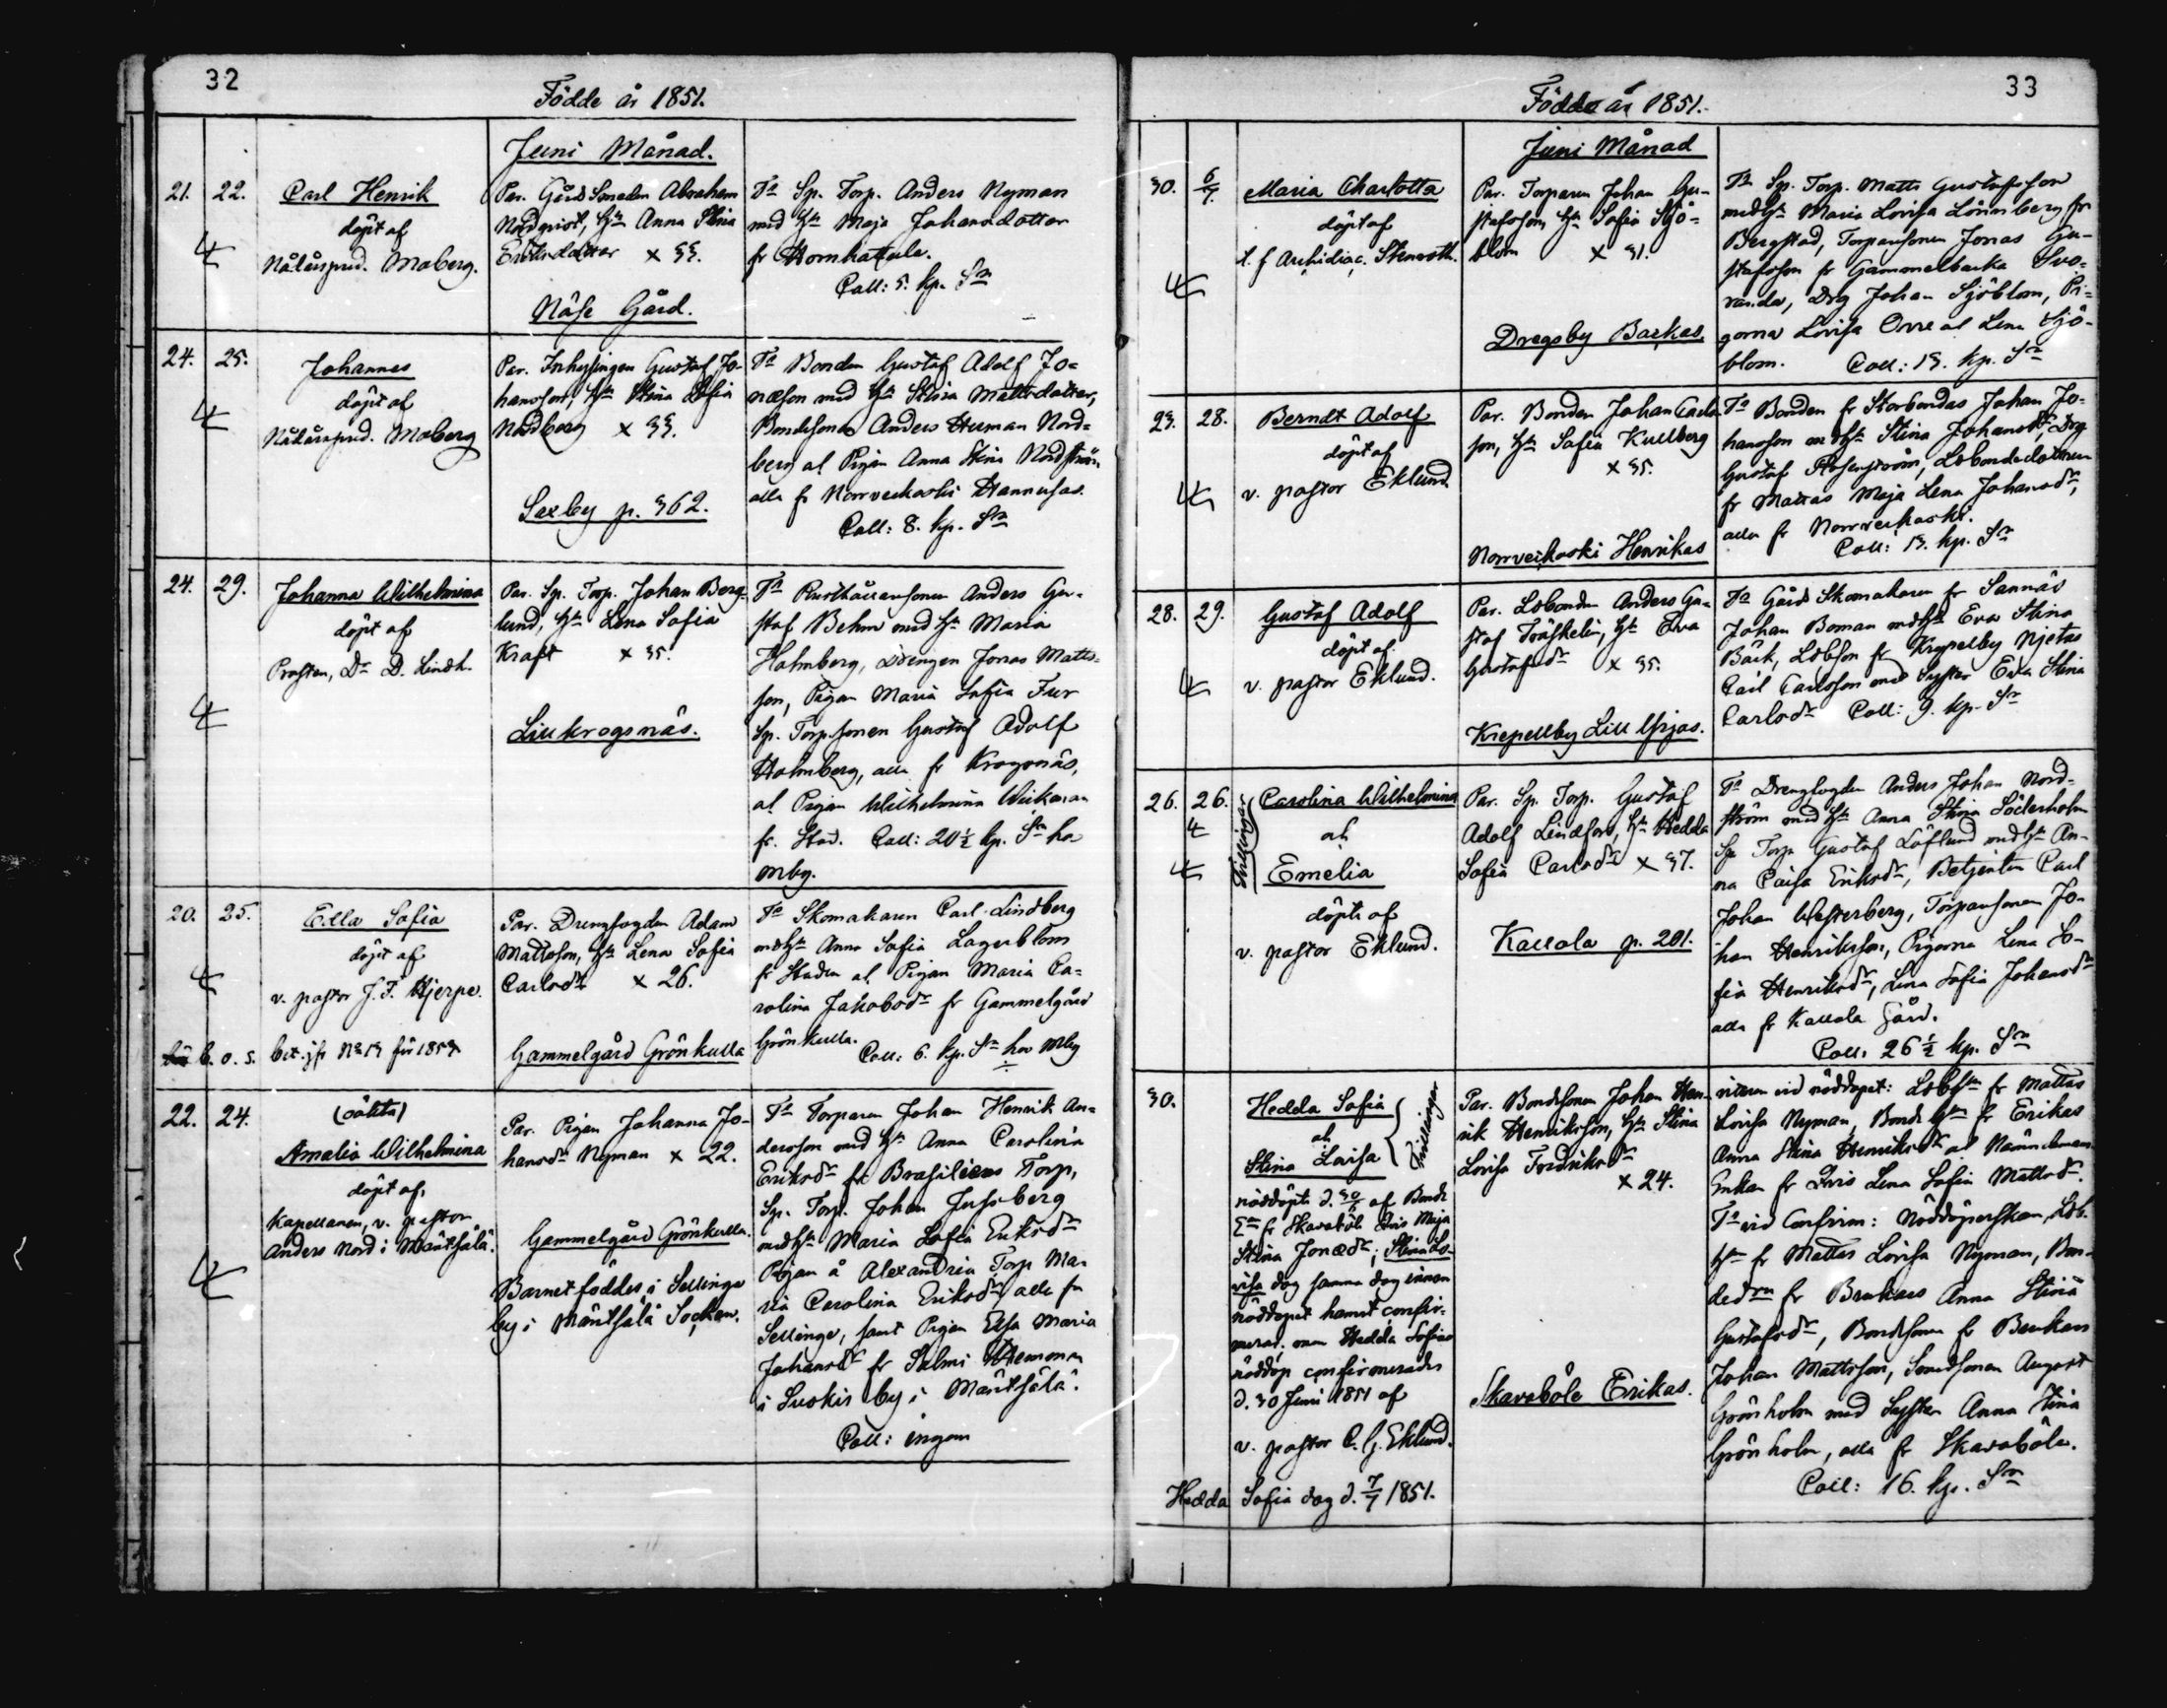 32
Födde år 1851.
Juni Månad.
21. 22. Carl Henrik
döpt af
Nådårspred. Moberg.
Par. Gårds Smeden Abraham
Nordqvist, Hu Anna Stina
Eriksdotter x 33.
Näse Gård.
Ts Sp. Torp. Anders Nyman
med Hu Maja Johansdotter
fr Hornhattula.
Coll: 5. kp. Sr
24. 25. Johannes
döpt af
Nådårspred. Moberg
Par. Inhysingen Gustaf Jo-
hansson, Hu Stina Sofia
Nordberg x 33.
Saxby p. 362.
Ts Bonden Gustaf Adolf Jo-
næson med Hu Stina Mattsdotter,
Bondesonen Anders Herman Nord-
berg al Pigan Anna Stina Nordström
alla fr Norrveckoski Hannusas.
Coll: 8. kp. Sr
24. 29. Johanna Wilhelmina
döpt af
Prosten, Dr D. Lindh.
Par. Sp. Torp. Johan Berg-
lund, Hu Lena Sofia
Kraft x 35.
Lillkrogsnäs.
Ts Rusthållaresonen Anders Gu-
staf Behm med Hu Maria
Holmberg, Drengen Jonas Matts-
son, Pigan Maria Sofia Fur
Sp. Torp.sonen Gustaf Adolf
Holmberg, alla fr Krogsnäs,
al Pigan Wilhelmina Wickman
fr. Stad. Coll: 20½ kp. Sr ha
mbg.
20. 25. Edla Sofia
döpt af
v. pastor J. F. Hjerpe.
b. o. s. bet. jfr No 13 för 1853
Par. Drengfogden Adam
Mattsson, Hu Lena Sofia
Carlsdr x 26.
Gammelgård Grönkulla
Ts Skomakaren Carl Lindberg
med Hu Anna Sofia Lagerblom
fr Staden al Pigan Maria Ca-
rolina Jakobsdr fr Gammelgård
Grönkulla. Coll: 6. kp. Sr ha mbg
22. 24. (oäkta)
Amalia Wilhelmina
döpt af
Kapellanen, v. pastor
Anders Nord i Mäntsälä.
Par. Pigan Johanna Jo-
hansdr Nyman x 22.
Gammelgård Grönkulla.
Barnet föddes i Sellinge
by i Mäntsälä Socken.
Ts Torparen Johan Henrik An-
dersson med Hu Anna Carolina
Eriksdr fr Brasiliens Torp,
Sp. Torp. Johan Jusoberg
med Hu Maria Sofia Eriksdr
Pigan å Alexandria Torp Ma-
ria Carolina Eriksdr alla fr
Sellinge, samt Pigan Elsa Maria
Johansdr fr Salmi Hemman
i Suokis by i Mäntsälä.
Coll: ingen
33
Födde år 1851.
Juni Månad
30. 6/7. Maria Charlotta
döpt af
t. f Archidiac. Stenroth.
Par. Torparen Johan Gu-
stafsson, Hu Sofia Sjö-
blom x 31.
Dregsby Backas.
Ts Sp. Torp. Matts Gustafsson
med Hu Maria Lovisa Lönnberg fr
Bergstad, Torparesonen Jonas Gu-
stafsson fr Gammelbacka Svo-
randa, Drg Johan Sjöblom, Pi-
gorna Lovisa Orre al Lena Sjö-
blom. Coll: 13. kp. Sr
23. 28. Berndt Adolf
döpt af
v. pastor Eklund.
Par. Bonden Johan Carls-
son, Hu Sofia Kullberg
x 35.
Norrveckoski Henrikas
Ts Bonden fr Storbondas Johan Jo-
hansson med Hu Stina Johansdr, Drg
Gustaf Rosenström, Lbbondedottren
fr Mattas Maja Lena Johansdr,
alla fr Norrveckoski.
Coll: 13. kp. Sr
28. 29. Gustaf Adolf
döpt af
v. pastor Eklund.
Par. Lbbonden Anders Gu-
staf Träskelin, Hu Eva
Gustafsdr x 35.
Krepellby Lill Yrjas.
Ts Gårds Skomakaren fr Sannäs
Johan Boman med Hu Eva Stina
Bäck, Lbbson fr Krepelby Njetas
Carl Carlsson med Syster Eva Stina
Carlsdr Coll: 9. kp. Sr
26. 26. Carolina Wilhelmina
al
Emelia
Tvillingar
döpte af
v. pastor Eklund.
Par. Sp. Torp. Gustaf
Adolf Lindfors, Hu Hedda
Sofia Carlsdr x 37.
Kallola p. 201.
Ts Drengfogden Anders Johan Nord-
ström med Hu Anna Stina Söderholm
Sp Torp Gustaf Löflund med Hu An-
na Caisa Eriksdr, Betjenten Carl
Johan Westerberg, Torparesonen Jo-
han Henriksson, Pigorna Lena So-
fia Henriksdr, Lena Sofia Johansdr
alla fr Kallola Gård.
Coll: 26½ kp. Sr
30. Hedda Sofia
al
Stina Lovisa
Tvillingar
nöddöpte d. 30/6 af Bonde
En fr Skaveböle Dris Maja
Stina Jonædr; Stina Lo-
visa dog samma dag innan
nöddopet hannt confir-
meras; men Hedda Sofias
nöddop confirmerades
d. 30 Juni 1851 af
v. pastor C. G. Eklund.
Hedda Sofia dog d. 7/7 1851.
Par. Bondesonen Johan Hen-
rik Henriksson, Hu Stina
Lovisa Fredriksdr
x 24.
Skaveböle Erikas.
vittnen vid nöddopet: Lbb Hu fr Mattas
Lovisa Nyman, Bonde Hu fr Erikas
Anna Stina Henriksdr al Nämndemans
Enkan fr Dris Lena Sofia Mattsdr.
Ts vid Confirm: Nöddöperskan, Lbb.
Hu fr Mattas Lovisa Nyman, Bon-
dedrn fr Brukars Anna Stina
Gustafsdr, Bondesonen fr Benkas
Johan Mattsson, Smedsonen August
Grönholm med Syster Anna Stina
Grönholm, alla fr Skaveböle.
Coll: 16. kp. Sr